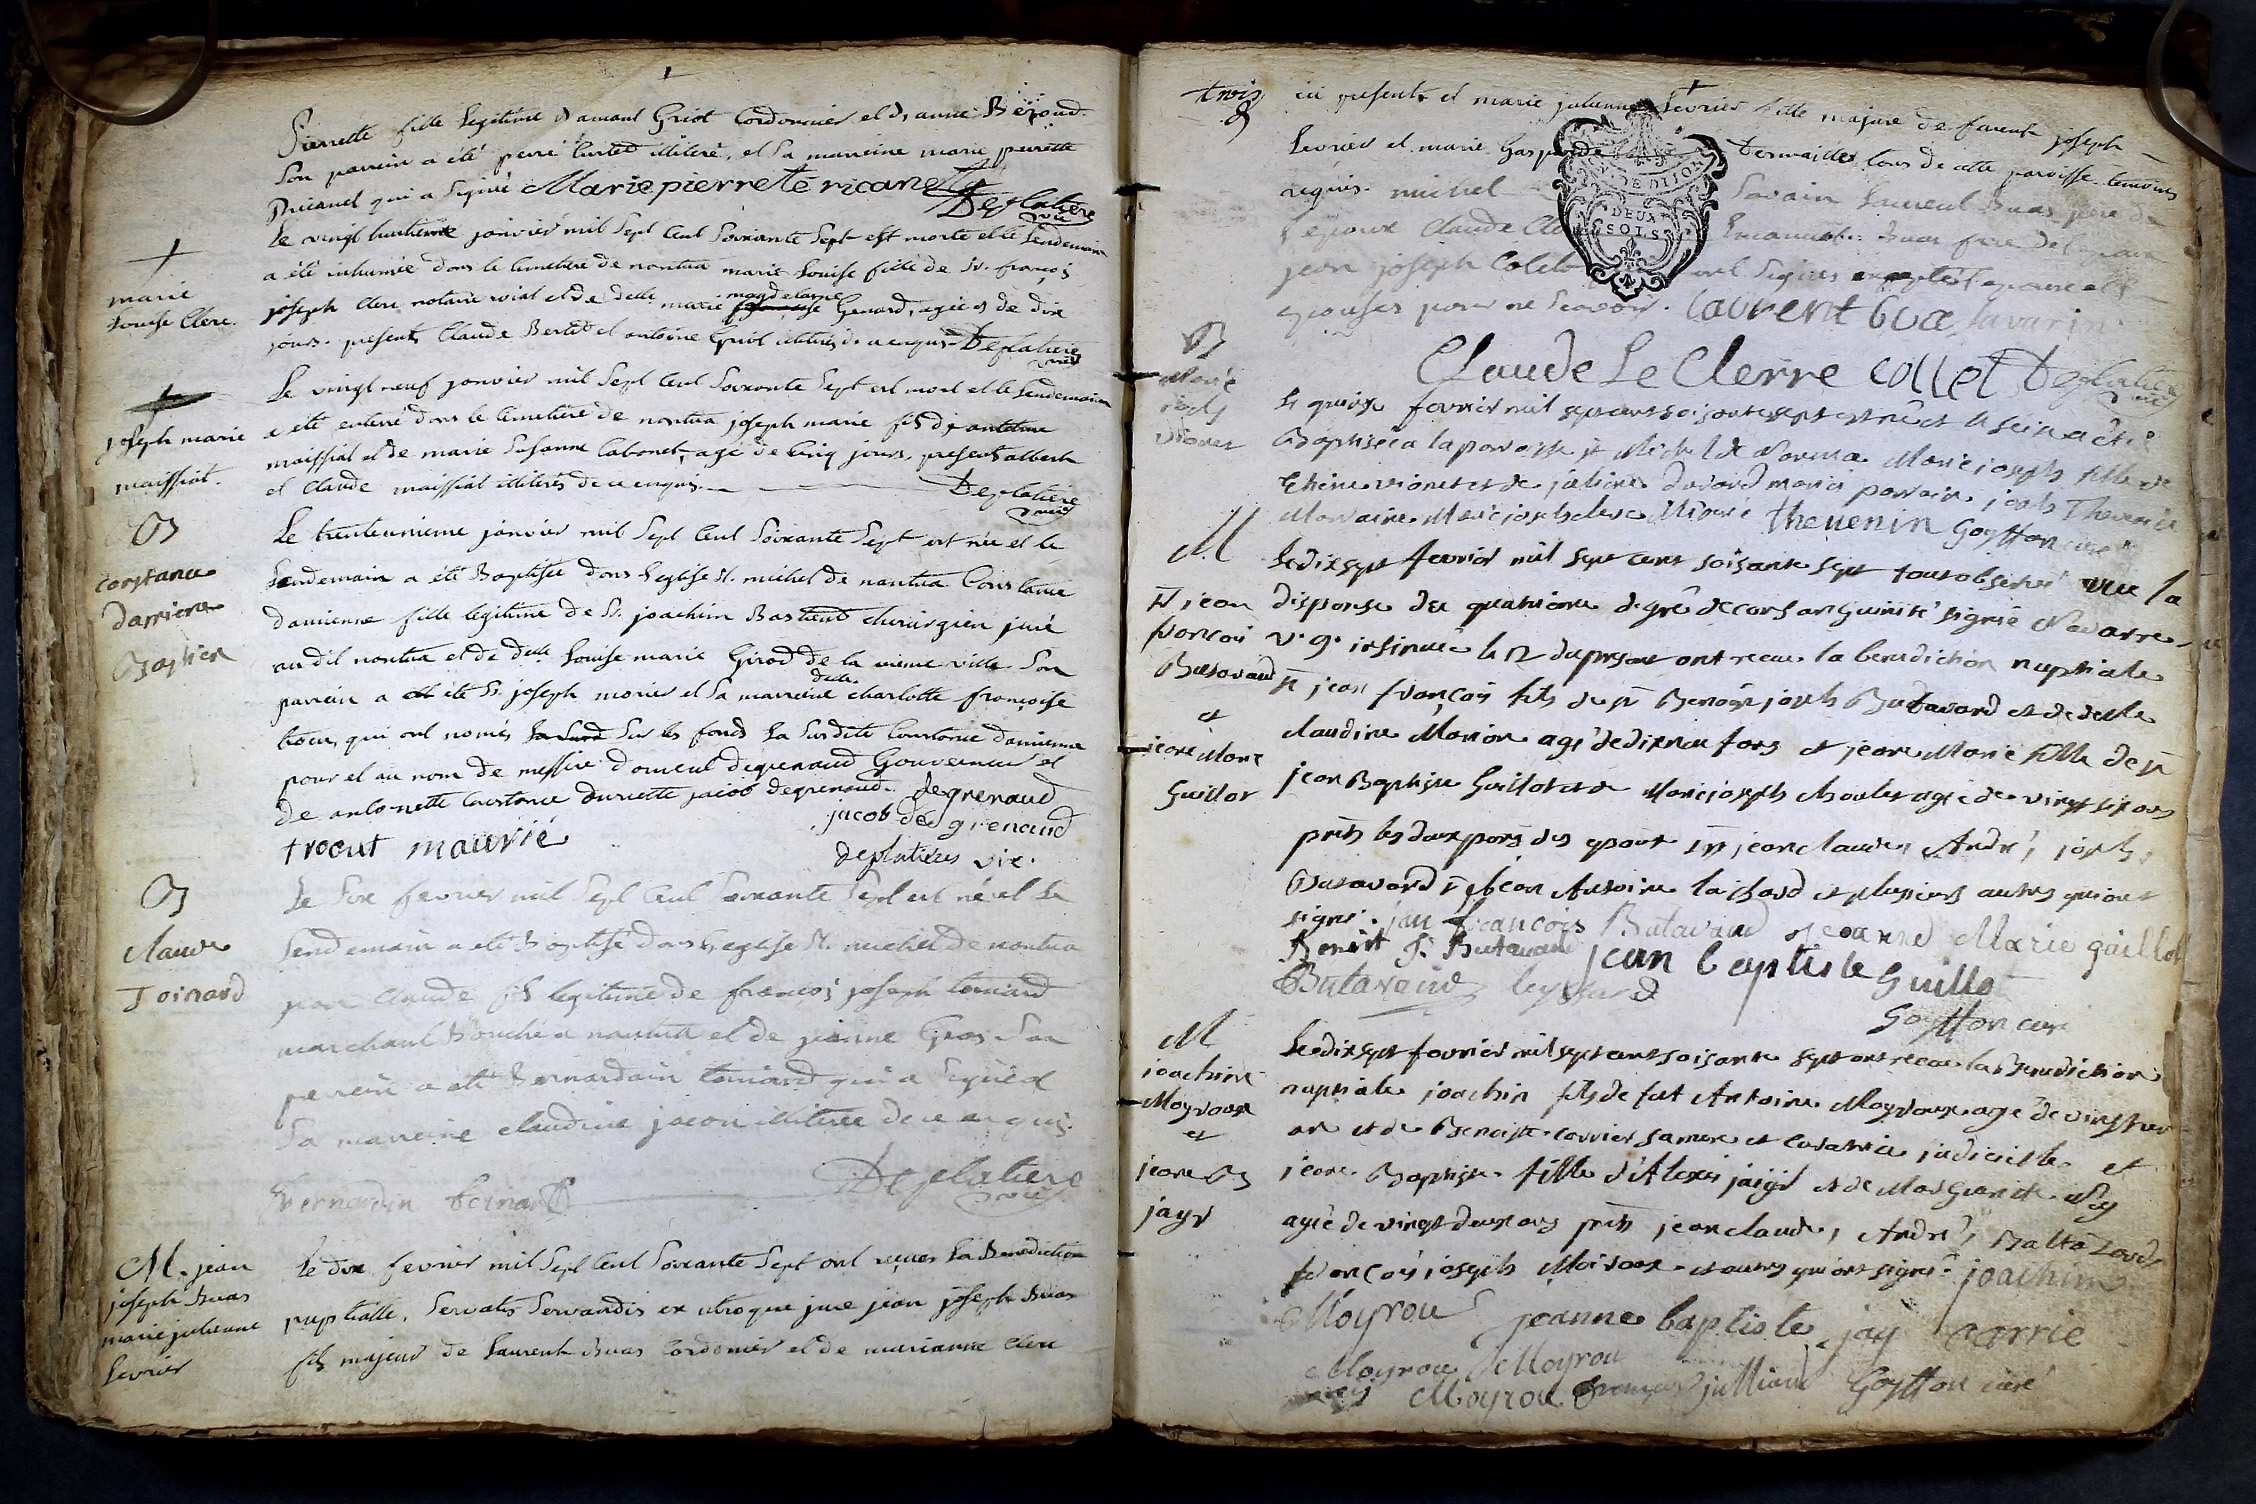 Pierrette fille legitime d'amant Griot Cordonnier et d'anne Bejoud.
Son parrein a été illiteré, et sa marreine marie pierrette
Ricanet qui a signé Marie pierrete ricanet
Deplatiere
vic
marie
Louise Clerc.
Le vingt huitieme janvier mil sept cent soixante sept est morte et le lendemain
a été inhumée dans le cimetiere de nantua marie Louise fille de Sr. françois
joseph Clerc notaire roial et de delle marie magdelaine Genard, agée de dix
jours. presents Claude Bertet et antoine Griot illiterés de ce enquis Deplatiere
vic
joseph marie
maissiat.
Le vingt neuf janvier mil sept cent soixante sept est mort et le lendemain
a été enterré dans le cimetiere de nantua joseph marie fils d'antoine
maissiat et de marie Susanne Cabonet, agé de cinq jours, presents albert
et Claude maissiat illiterés de ce enquis. Deplatiere
vic
B
Constance
damienne
Bastien
Le trente unieme janvier mil sept cent soixante sept est née et le
lendemain a été Baptisée dans l'eglise St. michel de nantua Constance
damienne fille legitime de Sr. joachim Bastient chirurgien juré
au dit nantua et de delle Louise marie Girod de la meme ville. Son
parrein a été Sr. joseph morier et sa marreine delle charlotte françoise
trocu, qui ont només sur les fonds la susdite Constance damienne
pour et au nom de messire degrenaud Gouverneur et
de antoinette Constance jacob degrenaud. degrenaud
jacob de grenaud
trocut maurié
deplatieres vic.
B
Claude
Toinard
Le six fevrier mil sept cent soixante sept est né et le
lendemain a été Baptisé dans l'eglise St. michel de nantua
par Claude fils legitime de françois joseph toinard
marchand Bouché a nantua et de jeanne Gros. Son
parrein a été Bernardin toinard qui a signé et
Sa marreine claudine jacon illiterée de ce enquis.
Deplatiere
vic
Bernardin toinard
M. jean
joseph Buas
marie julienne
Levrier
Le dix fevrier mil sept cent soixante sept ont reçues la Benediction
nuptialle, servatis servandis ex utroque jure jean joseph Buas
fils majeur de Laurent Buas Cordonier et de marianne Clerc
trois
ici presents et marie julienne Levrier fille majeure de joseph
Levrier et marie Gasparde tous de cette paroisse temoins
requis. michel Savarin Laurent Buas pere de
l'epoux Claude Emanuel Buas frere de
jean joseph Colet signés excepté l'epouse et
epouses pour ne scavoir. Laurent bua Savarin
GEN. DE DIJON
DEUX
SOLS
Claude Le Clerre collet Deplatiere
vic
B
Marie
joseph
Vionet
Le quinze fevrier mil sept cent soisante sept est née et a été
Baptisée a la paroisse st Michel de Nantua Marie joseph fille de
Etiene vionet et de julienne davard maries parrain joseph Thevenin
Marraine Marie joseph clerc thevenin Goytton curé
M
Sr jean
françois
Butavand
et
jeane Marie
Guillot
Le dix sept fevrier mil sept cent soisante sept tout observé vue la
dispense du quatrieme degré de consanguinité signé Navarre
v. g. insinuée le 12 du present ont recue la benediction nuptiale
Sr jean françois fils de Sr Benoit joseph Butavard et de delle
claudine Marion agé de dix neuf ans et jeane Marie fille de Sr
jean Baptiste Guillot et de Marie joseph agée de vingt six ans
prests les deux peres des epoux jean claude, André, joseph,
Butavard Antoine et plusieurs autres qui ont
signé. jan françois Butavand jeanne Marie guillot
Benoit J. Butavand jean baptiste Guillot
Butavand leyssard
Goytton curé
M
joachim
Moyroux
et
jeane B
jayr
Le dix sept fevrier mil sept cent soisante sept ont recue la Benediction
nuptiale joachin fils de fut Antoine Moyroux agé de vingt
an et de Benoiste carrier sa mere et curatrice judicielle et
jeane Baptiste fille d'Alexis jayr et de Marguerite
agée de vingt deux ans prests jean claude, André, Baltazard,
françois joseph Moiroux et autres qui ont signé. joachim
Moyrou jeanne baptiste jay carrie
Moyrou Moyrou
Moyrou françois julliand Goytton curé